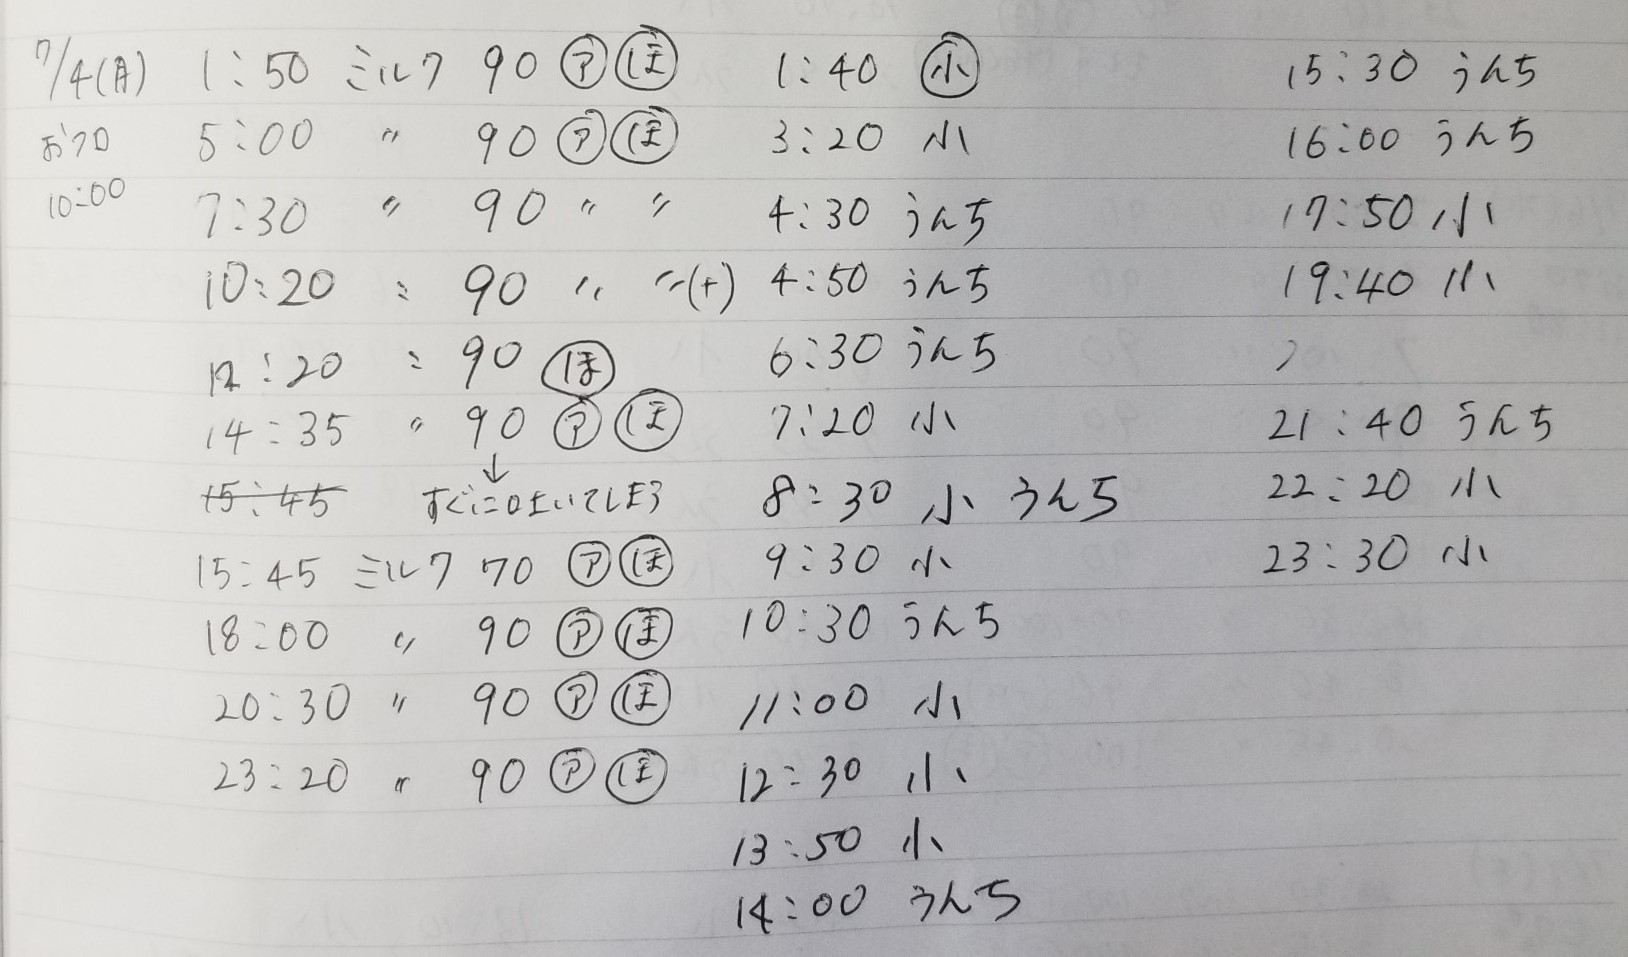 7/4(月) 1:50 ミルク 90 ㋐ ほ 1:40 小 15:30 うんち
おフロ 5:00 〃 90 ㋐ ほ 3:20 小 16:00 うんち
10:00 7:30 〃 90 〃 〃 4:30 うんち 17:50 小
10:20 〃 90 〃 〃(+) 4:50 うんち 19:40 小
12:20 〃 90 ほ 6:30 うんち
14:35 〃 90 ㋐ ほ 7:20 小 21:40 うんち
15:45 ↓ すぐに吐いてしまう 8:30 小 うんち 22:20 小
15:45 ミルク 70 ㋐ ほ 9:30 小 23:30 小
18:00 〃 90 ㋐ ほ 10:30 うんち
20:30 〃 90 ㋐ ほ 11:00 小
23:20 〃 90 ㋐ ほ 12:30 小
13:50 小
14:00 うんち